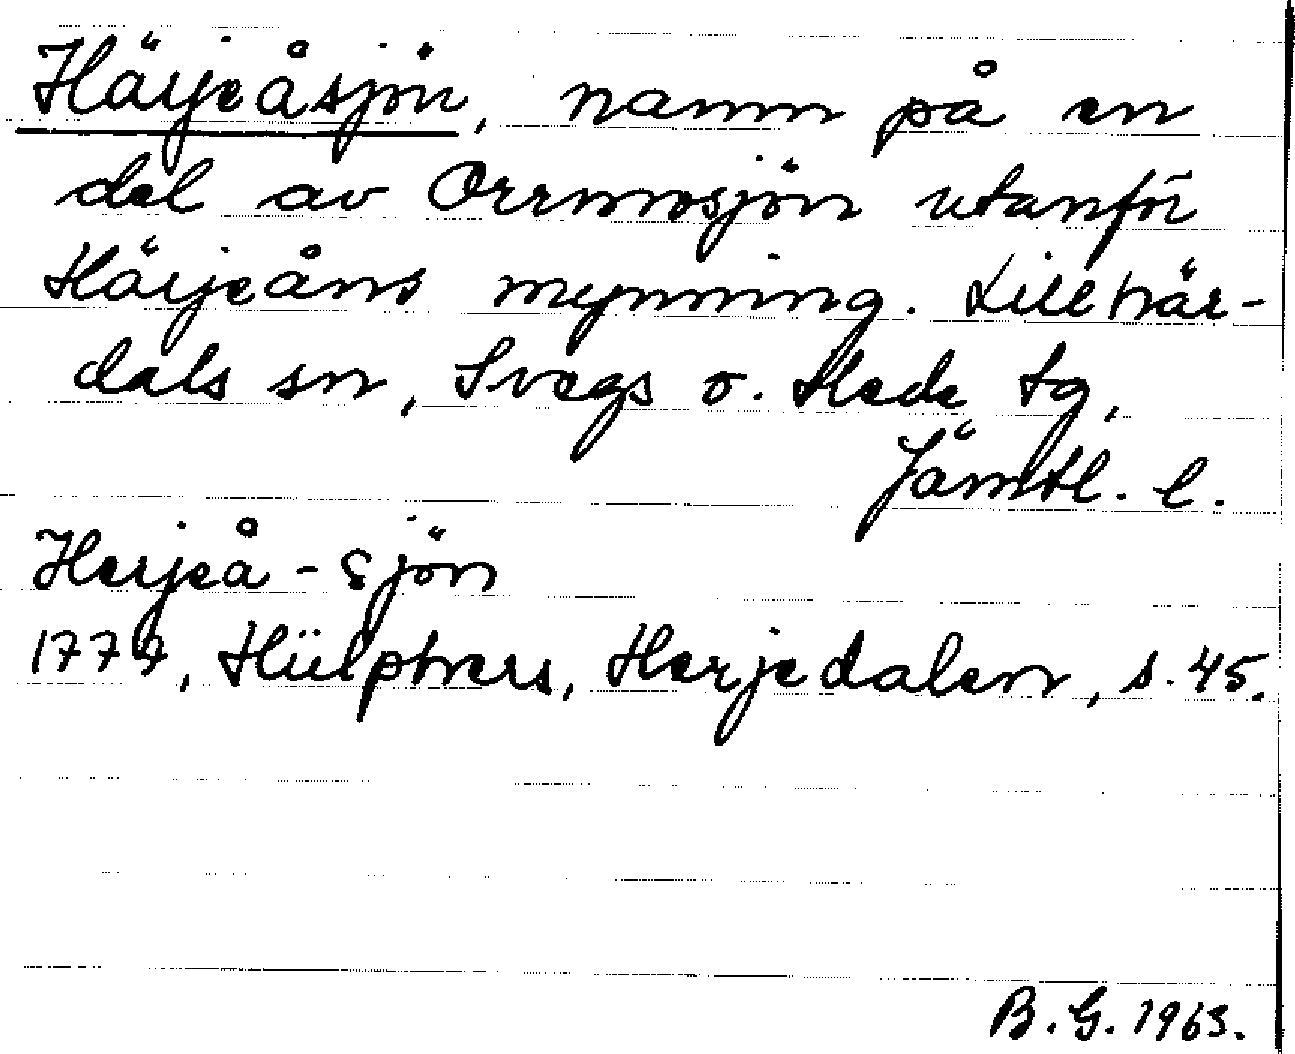 Härjeåsjön, namn på en
del av Orrmosjön utanför
Härjeåns mynning. Lillhär-
dals sn, Svegs o. Hede tg,
Jämtl. l.
Herjeå-sjön
1777, Hülphers, Herjedalen, s. 45.
B. G. 1963.